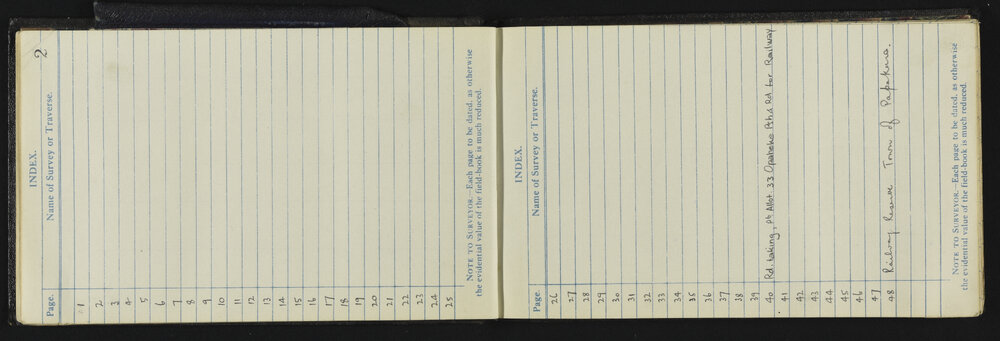 2
INDEX.
Page.
Name of Survey or Traverse.
1
2
3
4
5
6
7
8
9
10
11
12
13
14
15
16
17
18
19
20
21
22
23
24
25
NOTE TO SURVEYOR.—Each page to be dated, as otherwise
the evidential value of the field-book is much reduced.
INDEX.
Page.
Name of Survey or Traverse.
26
27
28
29
30
31
32
33
34
35
36
37
38
39
40 Rd. taking, Pt Allot 33 Opaheke Phd Rd for Railway
41
42
43
44
45
46
47
48 Railway Reserve Town of Papakura.
NOTE TO SURVEYOR.—Each page to be dated, as otherwise
the evidential value of the field-book is much reduced.